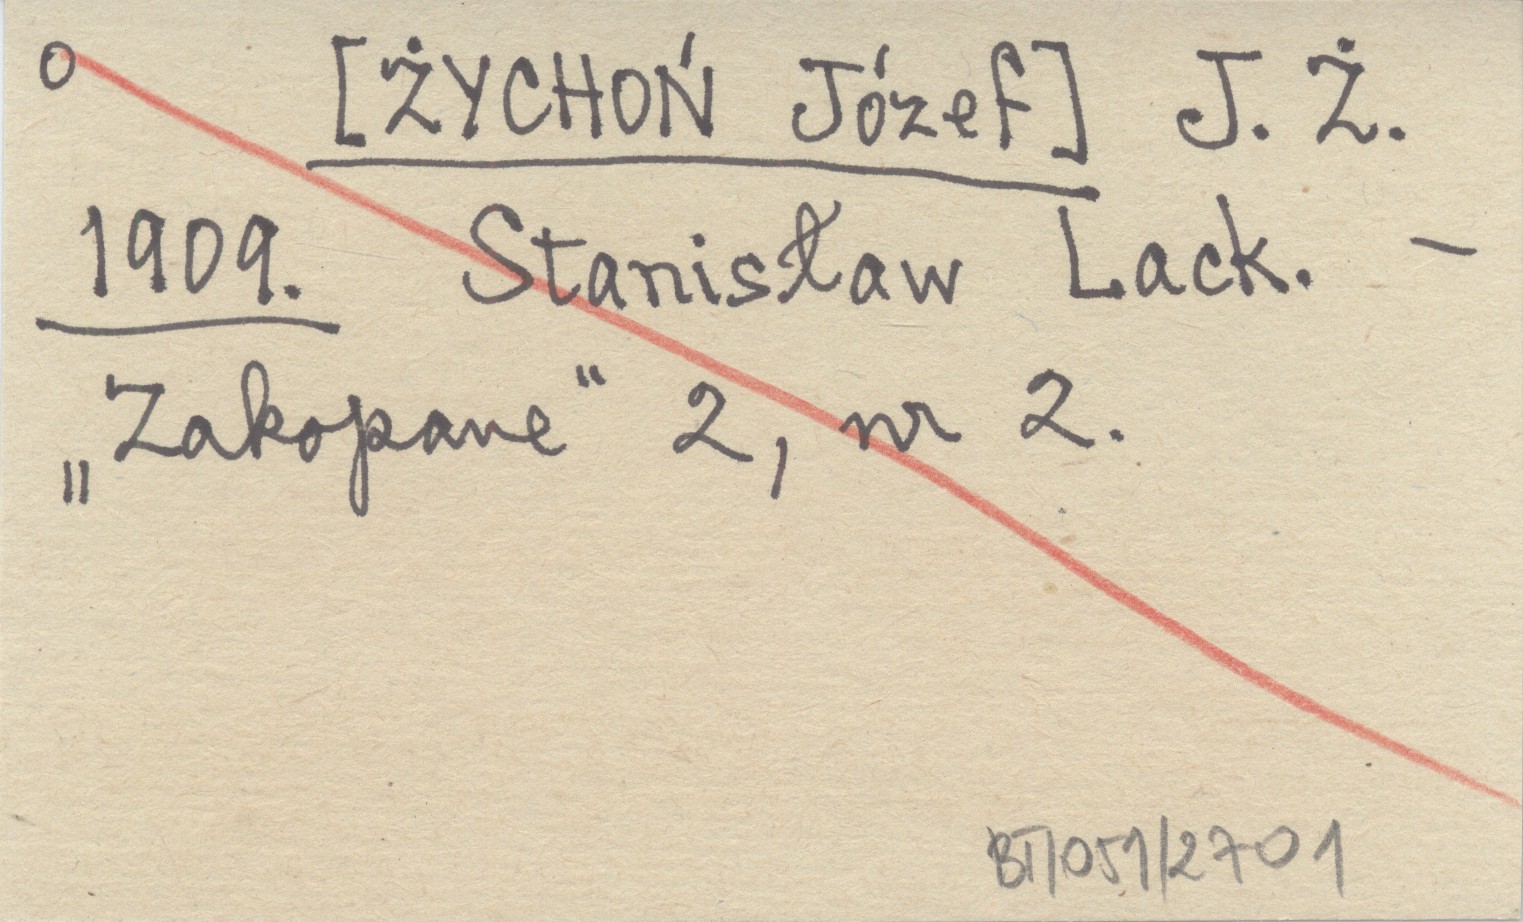 o [ŻYCHOŃ Józef] J. Ż.
1909. Stanisław Lack. –
„Zakopane“ 2, nr 2.
BT/051/2701